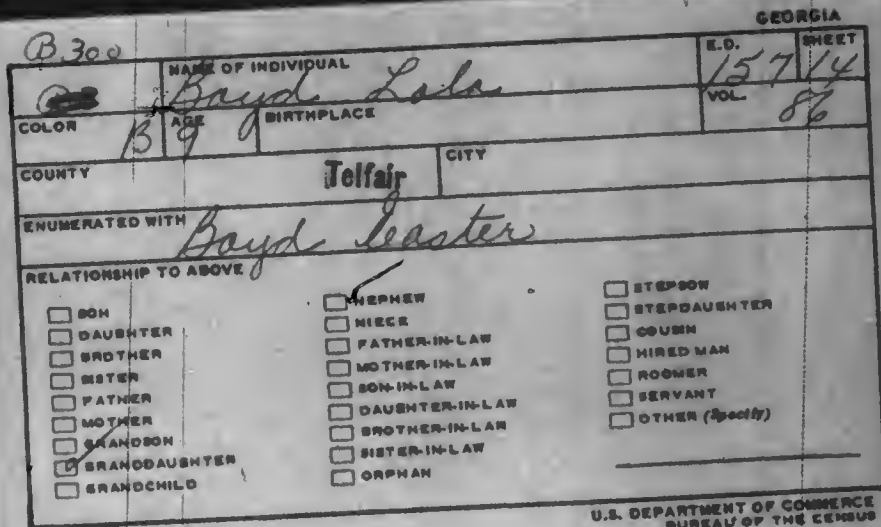 GEORGIA
B.300
NAME OF INDIVIDUAL
Boyd Lola
E.D.
157
SHEET
14
COLOR
B
AGE
9
BIRTHPLACE
VOL.
86
COUNTY
Telfair
CITY
ENUMERATED WITH
Boyd Easter
RELATIONSHIP TO ABOVE
SON
DAUGHTER
BROTHER
SISTER
FATHER
MOTHER
GRANDSON
GRANDDAUGHTER
GRANDCHILD
NEPHEW
NIECE
FATHER-IN-LAW
MOTHER-IN-LAW
SON-IN-LAW
DAUGHTER-IN-LAW
BROTHER-IN-LAW
SISTER-IN-LAW
ORPHAN
STEPSON
STEPDAUGHTER
COUSIN
HIRED MAN
ROOMER
SERVANT
OTHER (Specify)
U.S. DEPARTMENT OF COMMERCE
BUREAU OF THE CENSUS